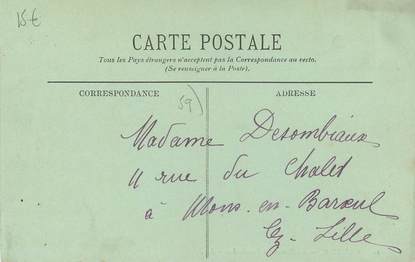 15€
CARTE POSTALE
Tous les Pays étrangers n'acceptent pas la Correspondance au recto.
(Se renseigner à la Poste).
CORRESPONDANCE
59)
ADRESSE
Madame Desombiaux
11 rue du Chalet
à Mons-en-Barœul
Lez-Lille